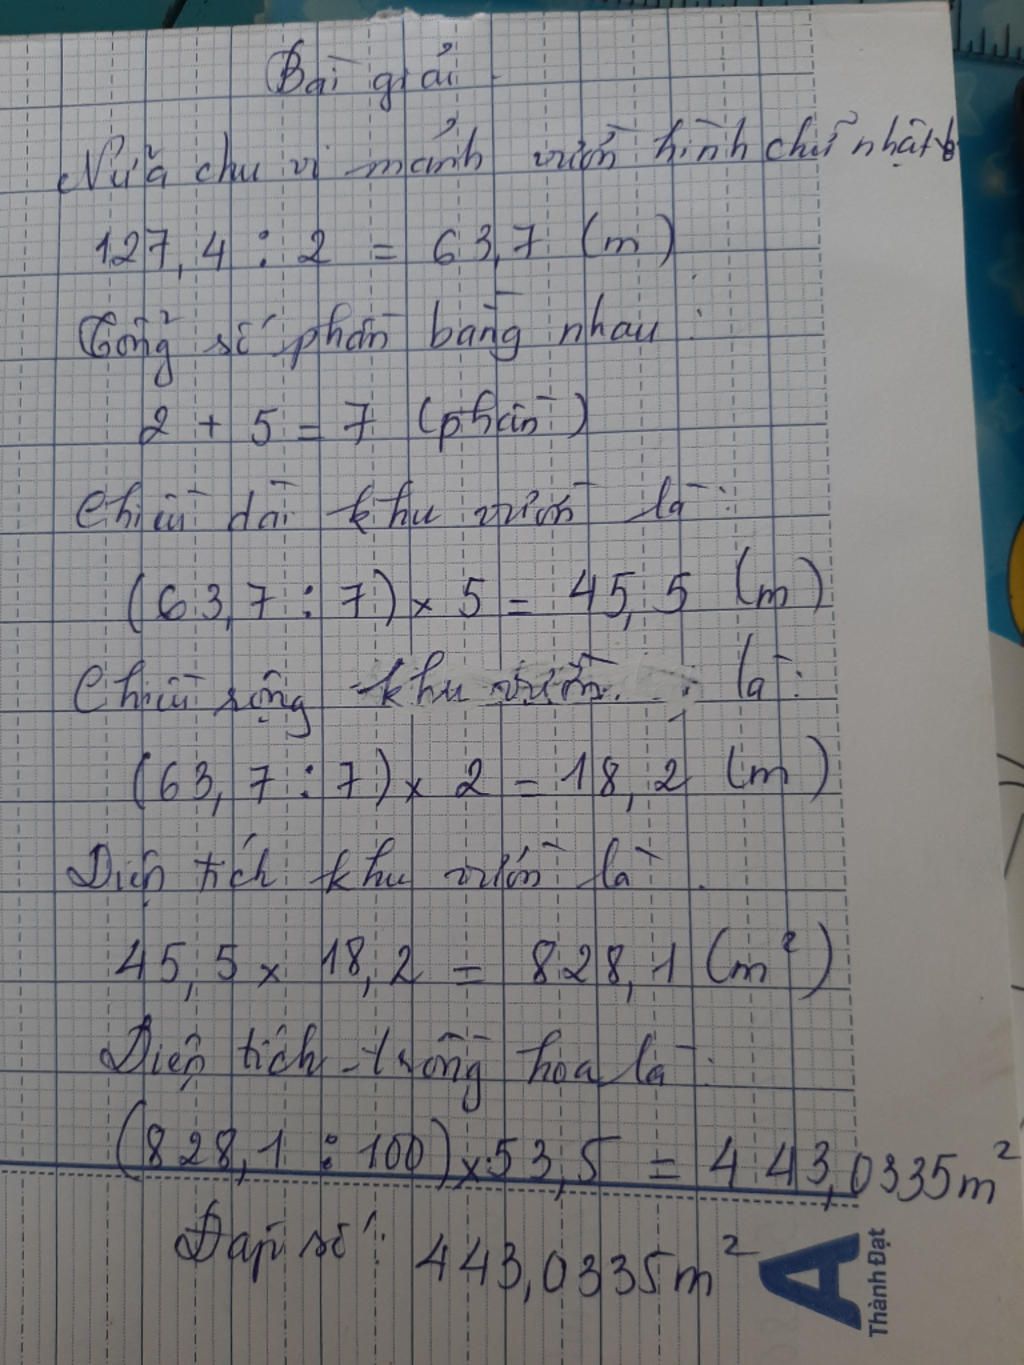 Bài giải
Nửa chu vi mảnh vườn hình chữ nhật
127,4 : 2 = 63,7 (m)
Tổng số phần bằng nhau :
2 + 5 = 7 (phần)
Chiều dài khu vườn là :
(63,7 : 7) x 5 = 45,5 (m)
Chiều rộng khu vườn là :
(63,7 : 7) x 2 = 18,2 (m)
Diện tích khu vườn là .
45,5 x 18,2 = 828,1 (m²)
Diện tích trồng hoa là :
(828,1 : 100) x 53,5 = 443,0335m²
Đáp số : 443,0335m²
A
Thành Đạt